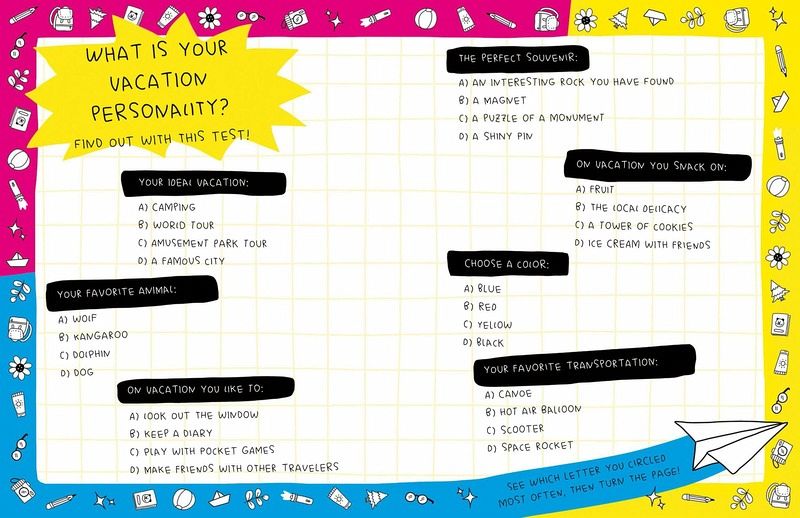 WHAT IS YOUR
VACATION
PERSONALITY?
FIND OUT WITH THIS TEST!
YOUR IDEAL VACATION:
A) CAMPING
B) WORLD TOUR
C) AMUSEMENT PARK TOUR
D) A FAMOUS CITY
YOUR FAVORITE ANIMAL:
A) WOLF
B) KANGAROO
C) DOLPHIN
D) DOG
ON VACATION YOU LIKE TO:
A) LOOK OUT THE WINDOW
B) KEEP A DIARY
C) PLAY WITH POCKET GAMES
D) MAKE FRIENDS WITH OTHER TRAVELERS
THE PERFECT SOUVENIR:
A) AN INTERESTING ROCK YOU HAVE FOUND
B) A MAGNET
C) A PUZZLE OF A MONUMENT
D) A SHINY PIN
ON VACATION YOU SNACK ON:
A) FRUIT
B) THE LOCAL DELICACY
C) A TOWER OF COOKIES
D) ICE CREAM WITH FRIENDS
CHOOSE A COLOR:
A) BLUE
B) RED
C) YELLOW
D) BLACK
YOUR FAVORITE TRANSPORTATION:
A) CANOE
B) HOT AIR BALLOON
C) SCOOTER
D) SPACE ROCKET
SEE WHICH LETTER YOU CIRCLED
MOST OFTEN, THEN TURN THE PAGE!